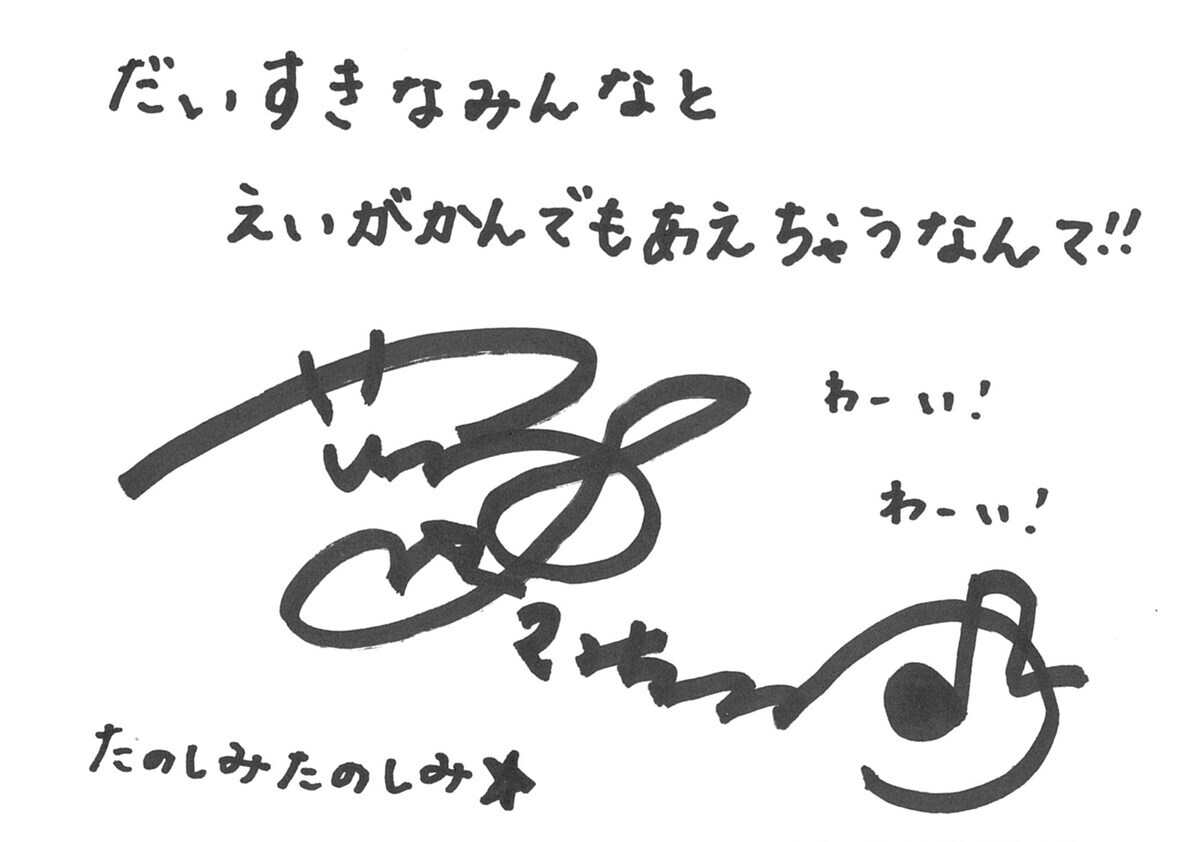 だいすきなみんなと
えいがかんでもあえちゃうなんて!!
わーい!
わーい!
たのしみたのしみ★